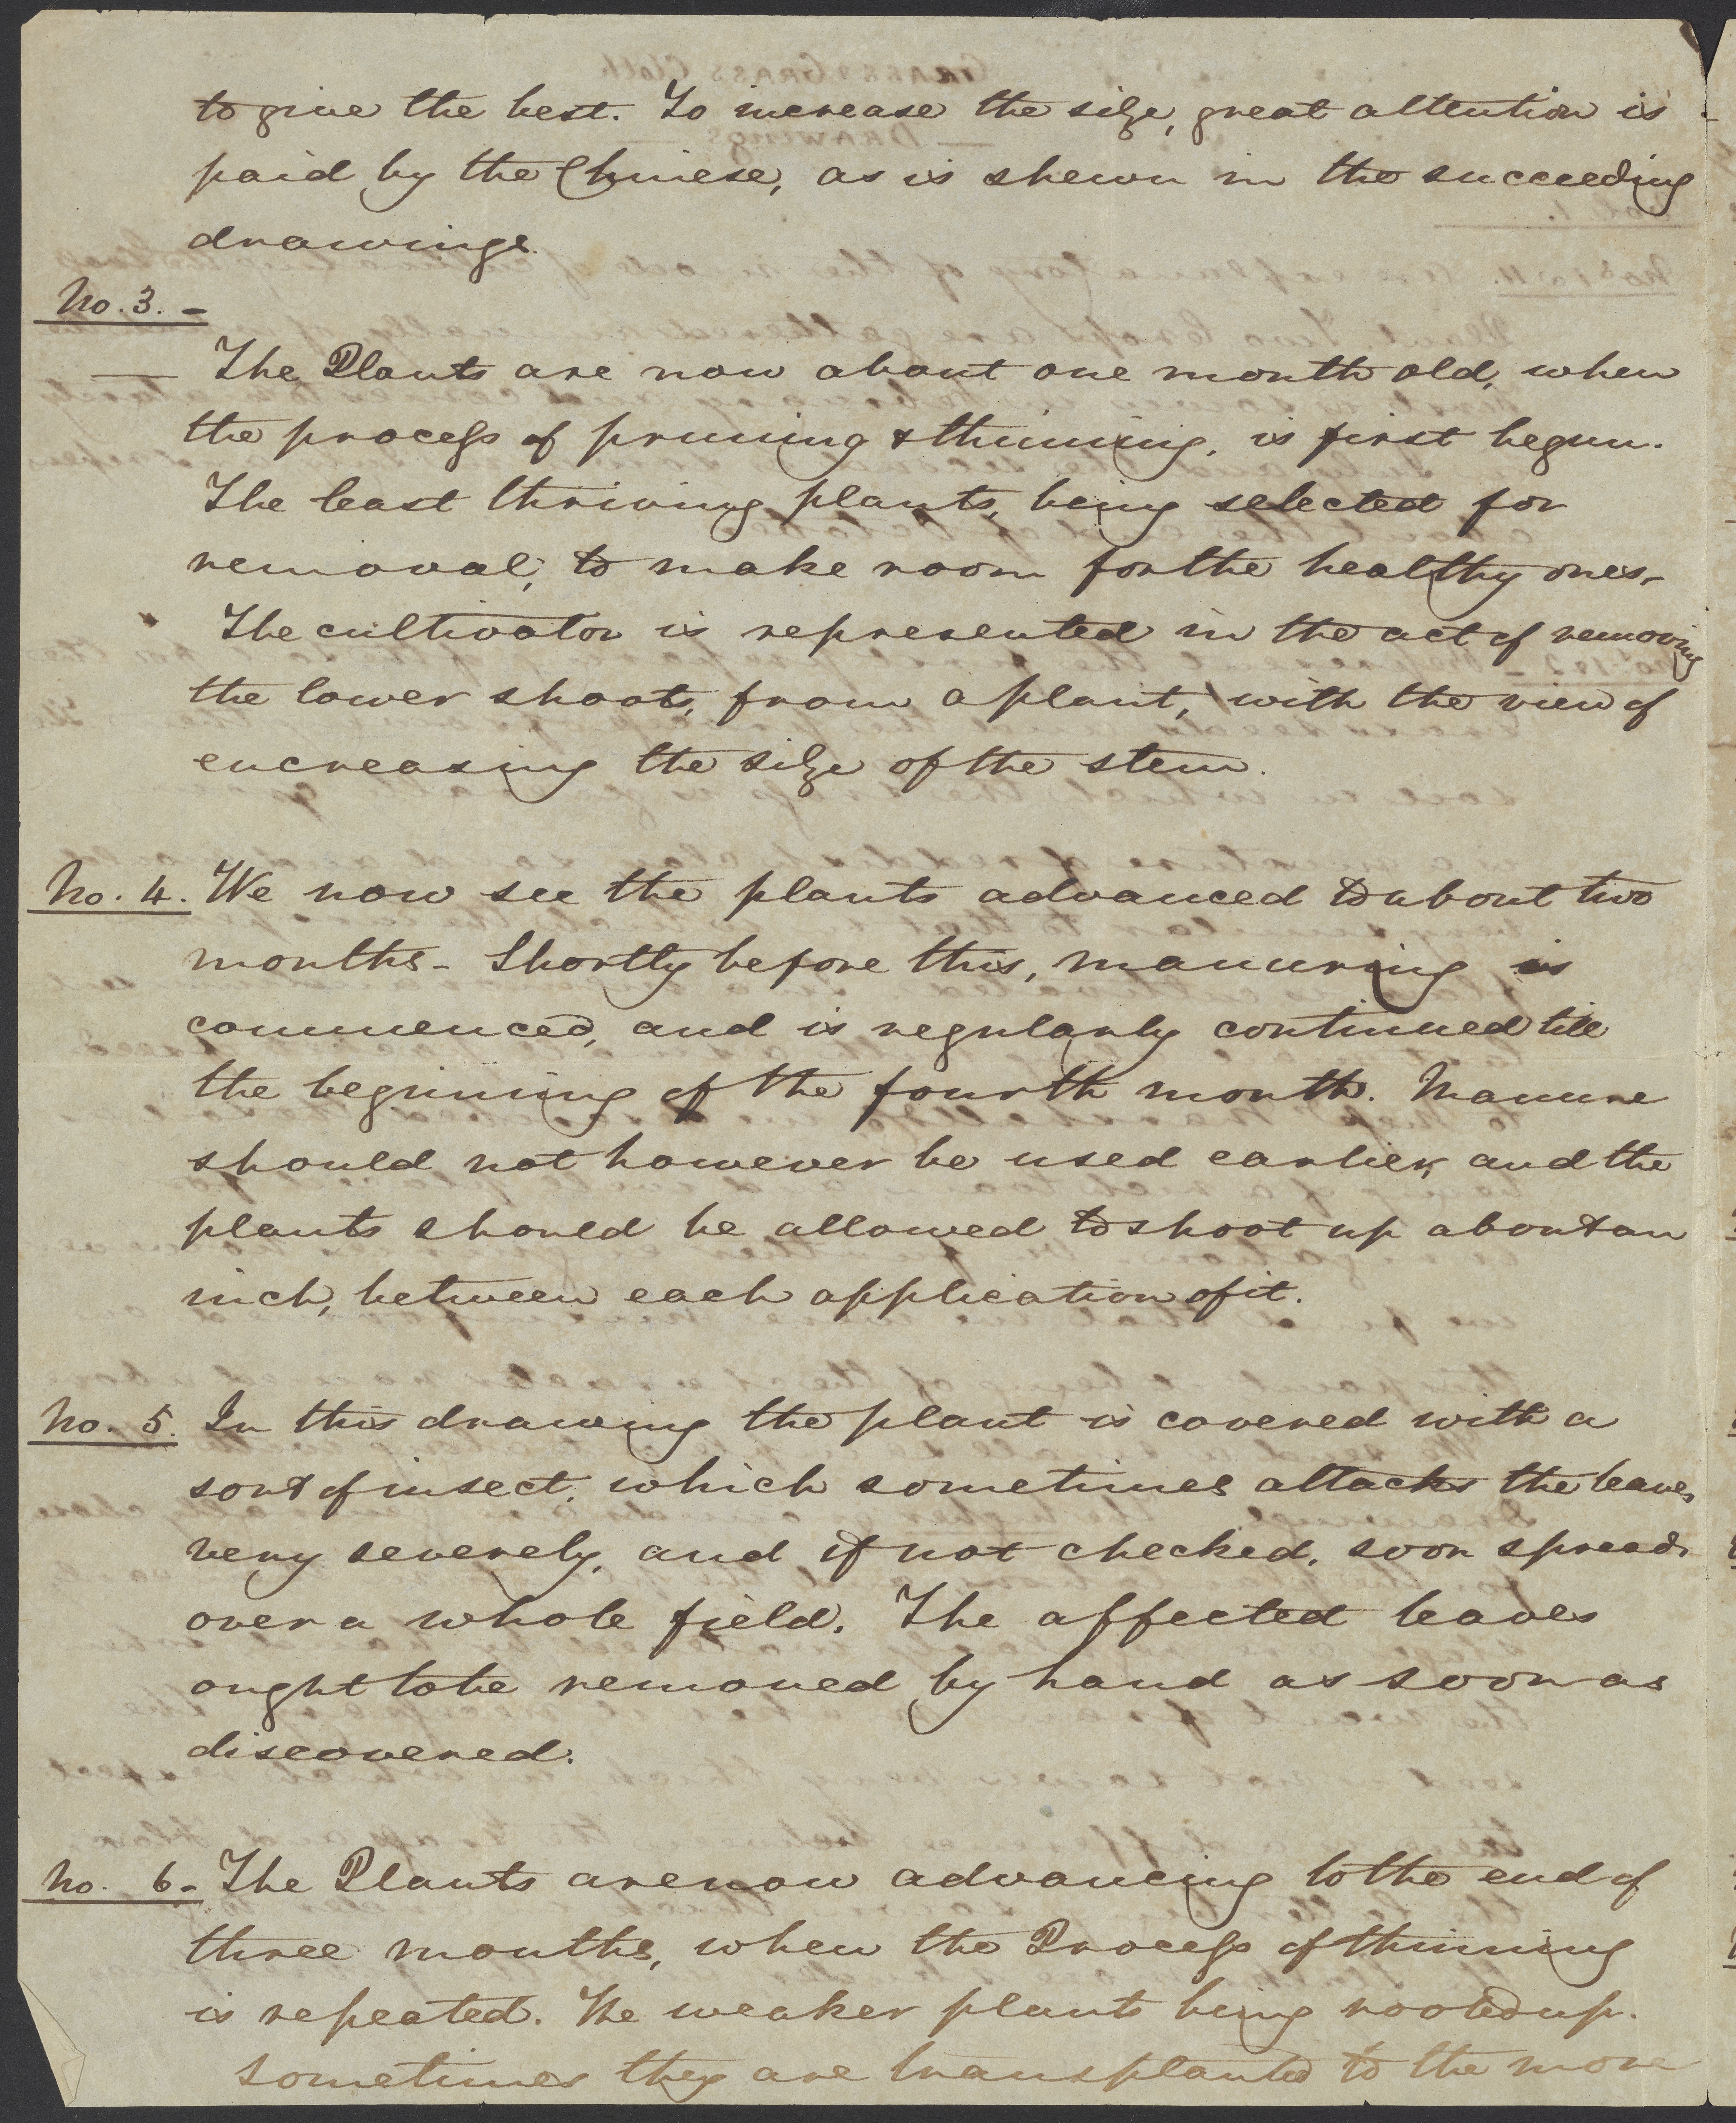 to give the best. To increase the size, great attention is
paid by the Chinese, as is shewn in the succeeding
drawings.
No. 3. -
— The Plants are now about one month old, when
the process of pruning & thinning, is first begun.
The least thriving plants, being selected for
removal, to make room for the healthy ones,-
The cultivator is represented in the act of removing
the lower shoots, from a plant, with the view of
encreasing the size of the stem.
No. 4. We now see the plants advanced to about two
months - Shortly before this, manuring is
commenced, and is regularly continued till
the beginning of the fourth month. Manure
should not however be used earlier, and the
plants should be allowed to shoot up about an
inch, between each application of it.
No. 5. In this drawing the plant is covered with a
sort of insect, which sometimes attacks the leaves
very severely, and if not checked, soon spreads
over a whole field. The affected leaves
ought to be removed by hand as soon as
discovered.
No. 6 - The Plants are now advancing to the end of
three months, when the Process of thinning
is repeated. The weaker plants being rooted up.
Sometimes they are transplanted to the more